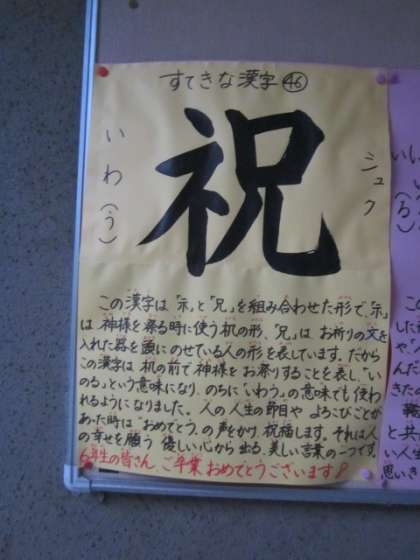 すてきな漢字㊻
祝
いわ(う)
シュク
この漢字は「示」と「兄」を組み合わせた形で、「示」
は神様を祭る時に使う机の形、「兄」はお祈りの文を
入れた器を頭にのせている人の形を表しています。だから
この漢字は机の前で神様をお祭りすることを表し、「い
のる」という意味になり、のちに「いわう」の意味でも使わ
れるようになりました。人の人生の節目やよろこびごとが
あった時は「おめでとう」の声をかけ、祝福します。それは人
の幸せを願う優しい心から出る、美しい言葉の一つです。
6年生の皆さん、ご卒業おめでとうございます!